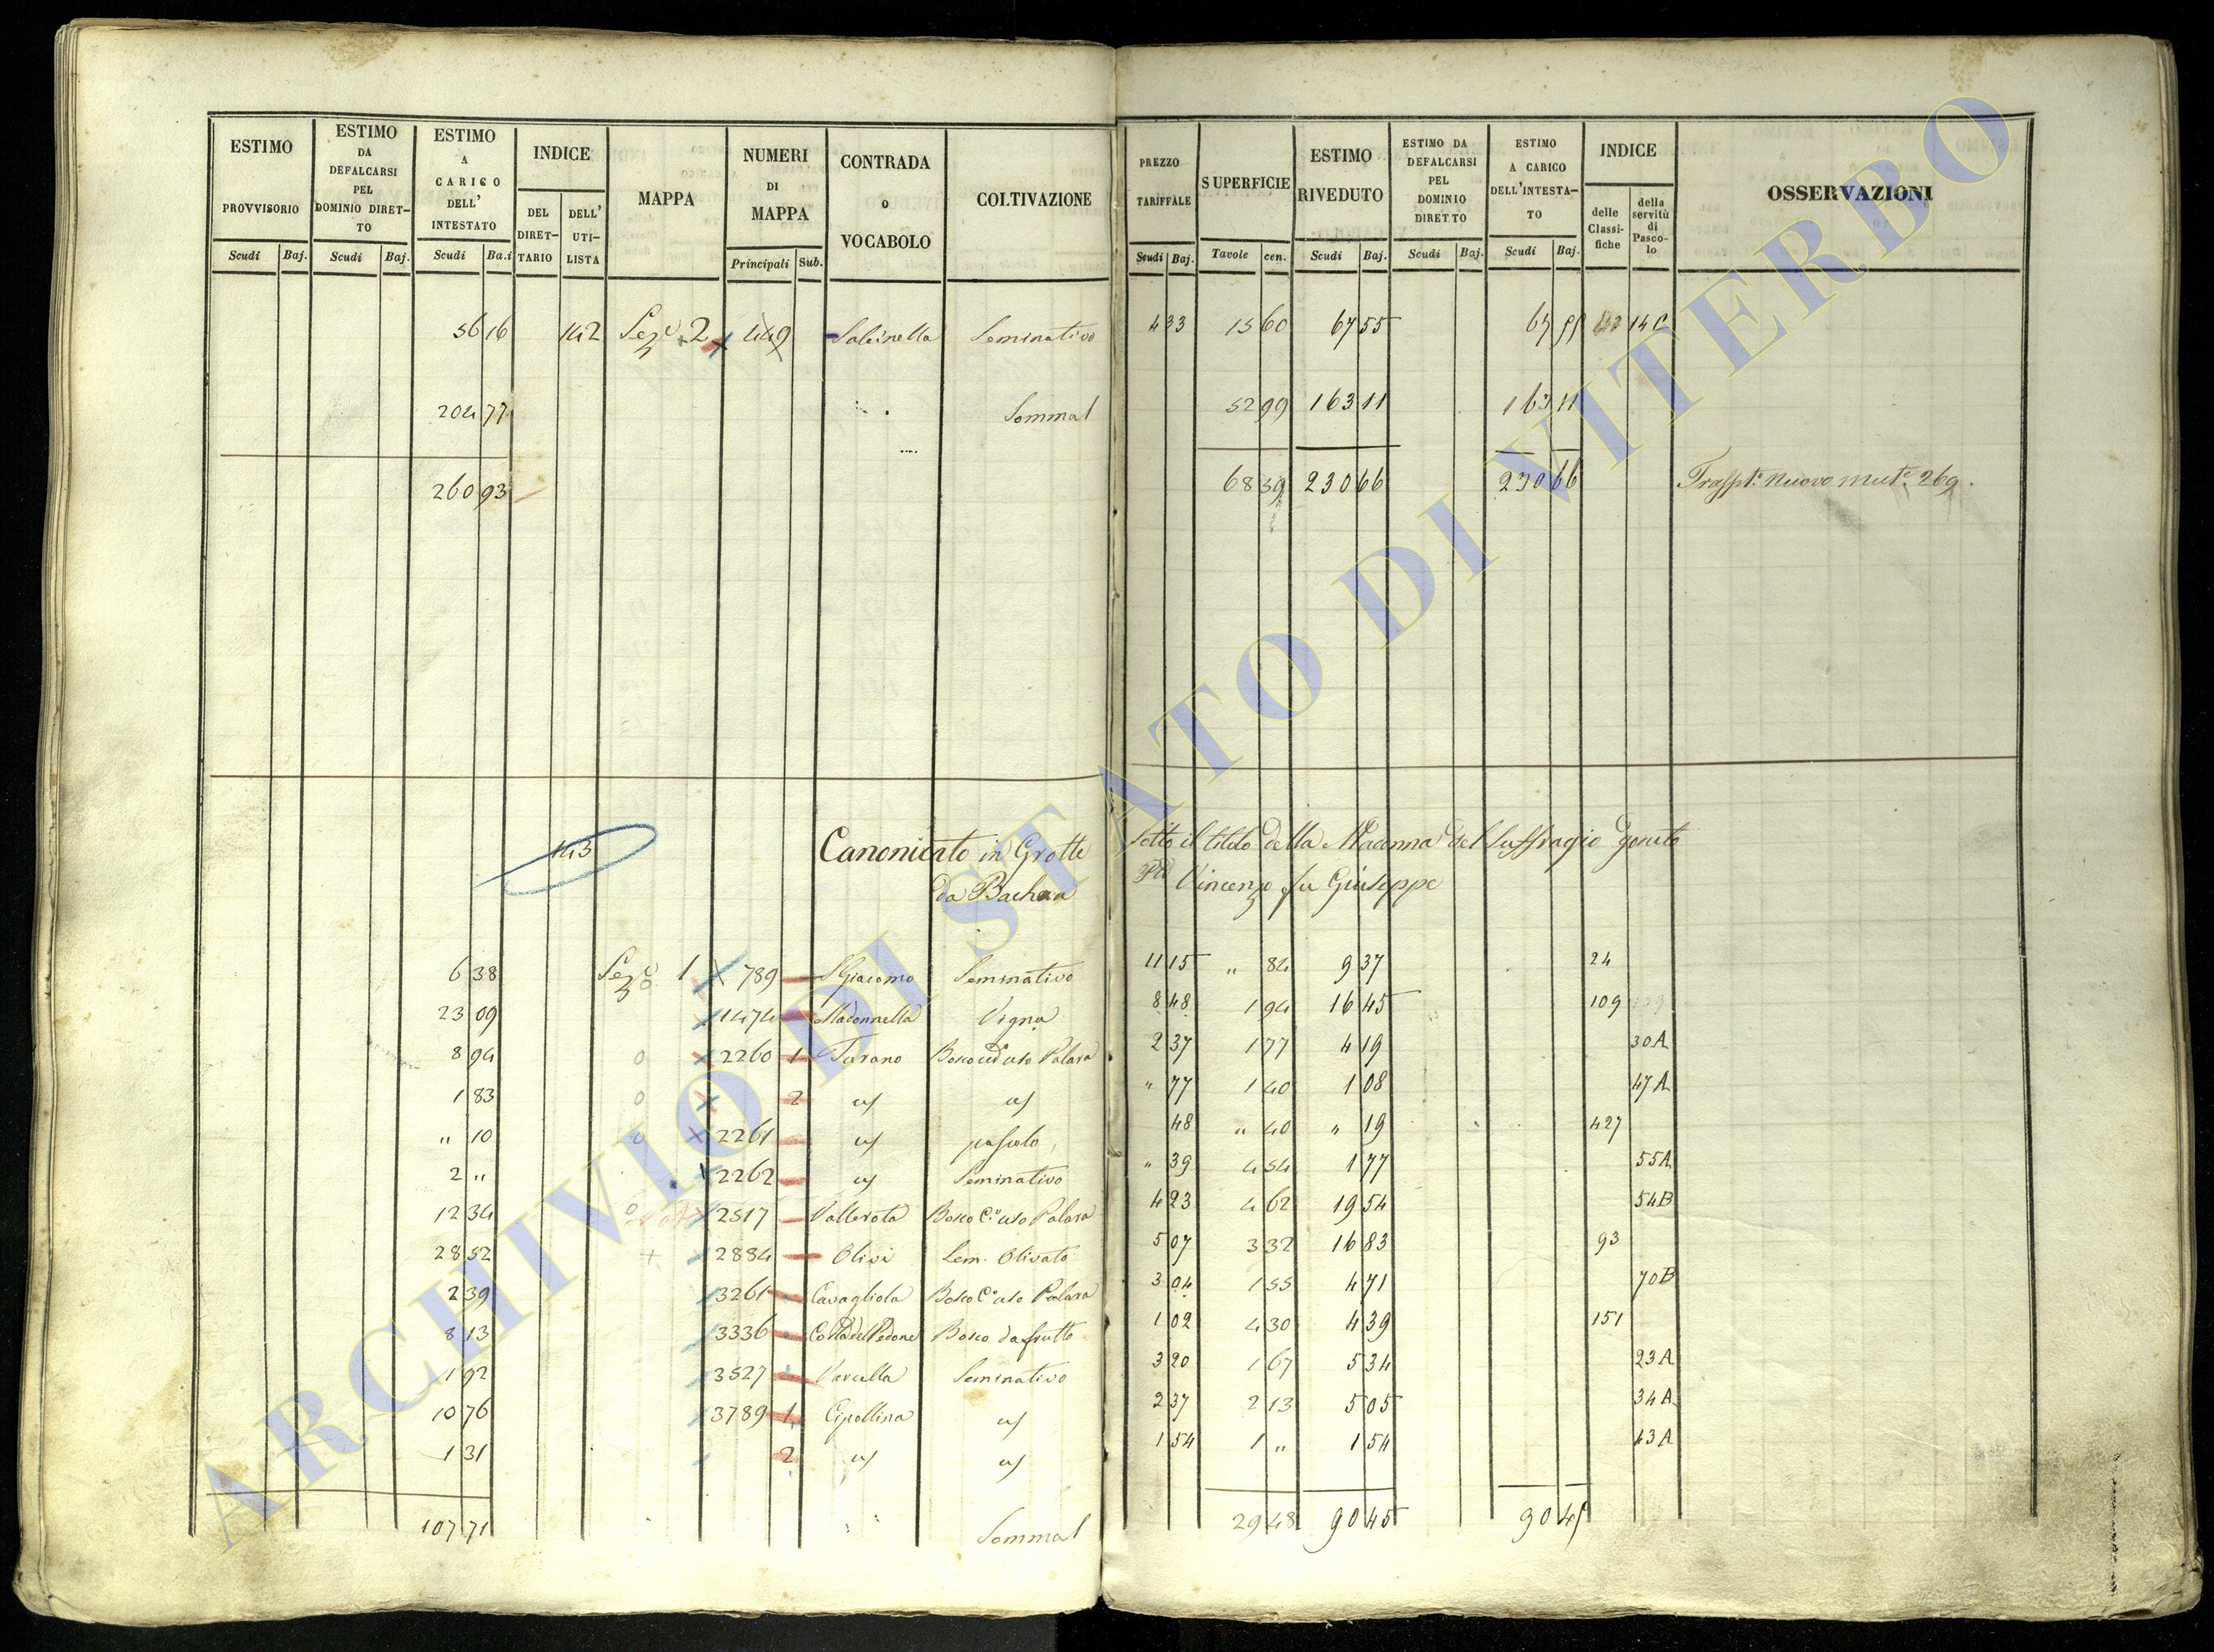 ESTIMO PROVVISORIO Scudi Baj.
ESTIMO DA DEFALCARSI PEL DOMINIO DIRET-TO Scudi Baj.
ESTIMO A CARICO DELL' INTESTATO Scudi Ba.i
INDICE DEL DIRET-TARIO DELL' UTI-LISTA
MAPPA
NUMERI DI MAPPA Principali Sub.
CONTRADA o VOCABOLO
COLTIVAZIONE
PREZZO TARIFFALE Scudi Baj.
SUPERFICIE Tavole cen.
ESTIMO RIVEDUTO Scudi Baj.
ESTIMO DA DEFALCARSI PEL DOMINIO DIRETTO Scudi Baj.
ESTIMO A CARICO DELL'INTESTA-TO Scudi Baj.
INDICE delle Classi-fiche della servitù di Pasco-lo
OSSERVAZIONI
56 16 142 Sez.e 2 449 Seminativo 4 33 15 60 67 55 67 55 14 C
204 77 Somma 52 99 163 11 163 11
260 93 68 59 230 66 230 66 Traspt.o Nuovo mut.e 269.
143 Canonicato in Grotte sotto il titolo della Madonna del Suffragio goduto
da Vincenzo fu Giuseppe
6 38 Sez.e 1 789 S Giacomo Seminativo 11 15 " 84 9 37 24
23 09 1474 Madonnella Vigna 8 48 1 94 16 45 109
8 94 2260 1 Bosco ceduo uso Palara 2 37 1 77 4 19 30 A
1 83 2 " 77 1 40 1 08 47 A
" 10 2261 pascolo 48 " 40 " 19 427
2 " 2262 Seminativo " 39 4 54 1 77 55 A
12 34 2517 Bosco C.o uso Palara 4 23 4 62 19 54 54 B
28 52 2884 Olivi Sem. Olivato 5 07 3 32 16 83 93
2 39 3261 Cavagliola Bosco C.o uso Palara 3 04 1 55 4 71 70 B
8 13 3336 Bosco da frutto 1 02 4 30 4 39 151
1 92 3527 Seminativo 3 20 1 67 5 34 23 A
10 76 3789 1 Cipollina 2 37 2 13 5 05 34 A
1 31 2 1 54 1 " 1 54 43 A
107 71 Somma 29 48 90 45 90 45
ARCHIVIO DI STATO DI VITERBO